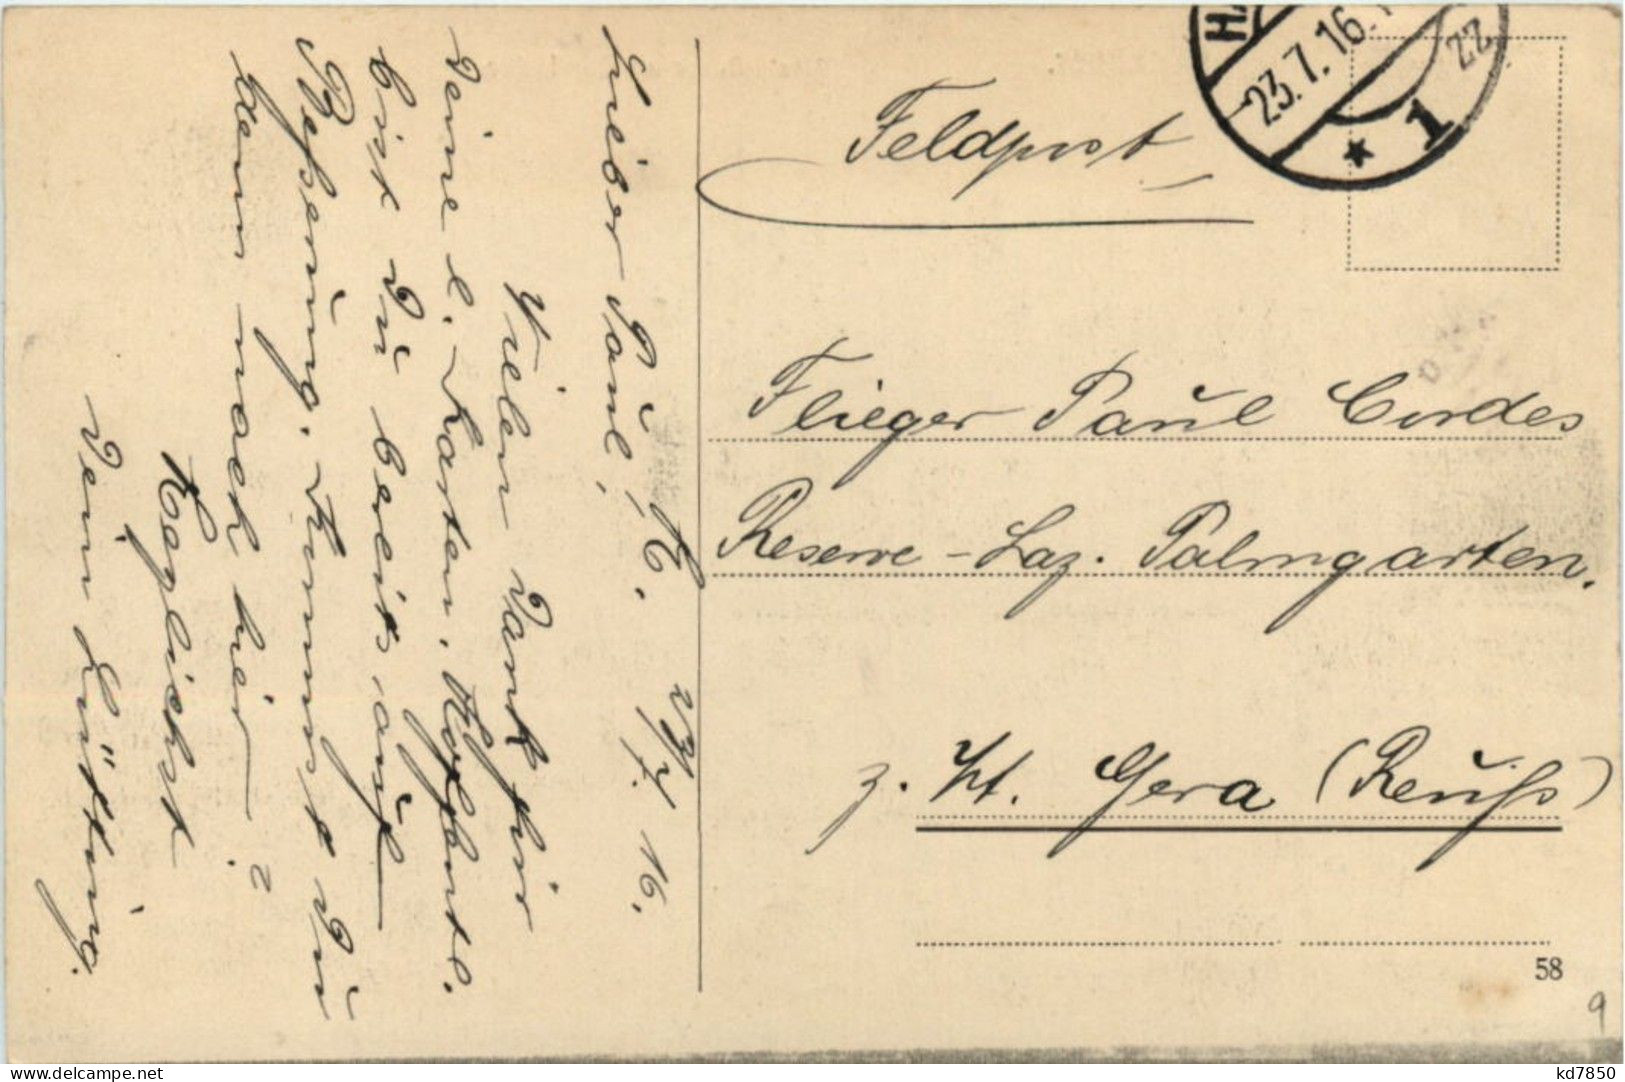 H. 23/7. 16.
Lieber Paul,
Vielen Dank für
Deine l. Karten. Hoffentl.
bist Du bereits auf
Besserung. Kommst Du
denn nach hier?
Herzlichst
Dein
Feldpost
Flieger Paul Cordes
Reserve-Laz. Palmgarten.
z. Zt. Gera (Reuß)
23.7.16.
* 1
58
9
delcampe.net
kd7850